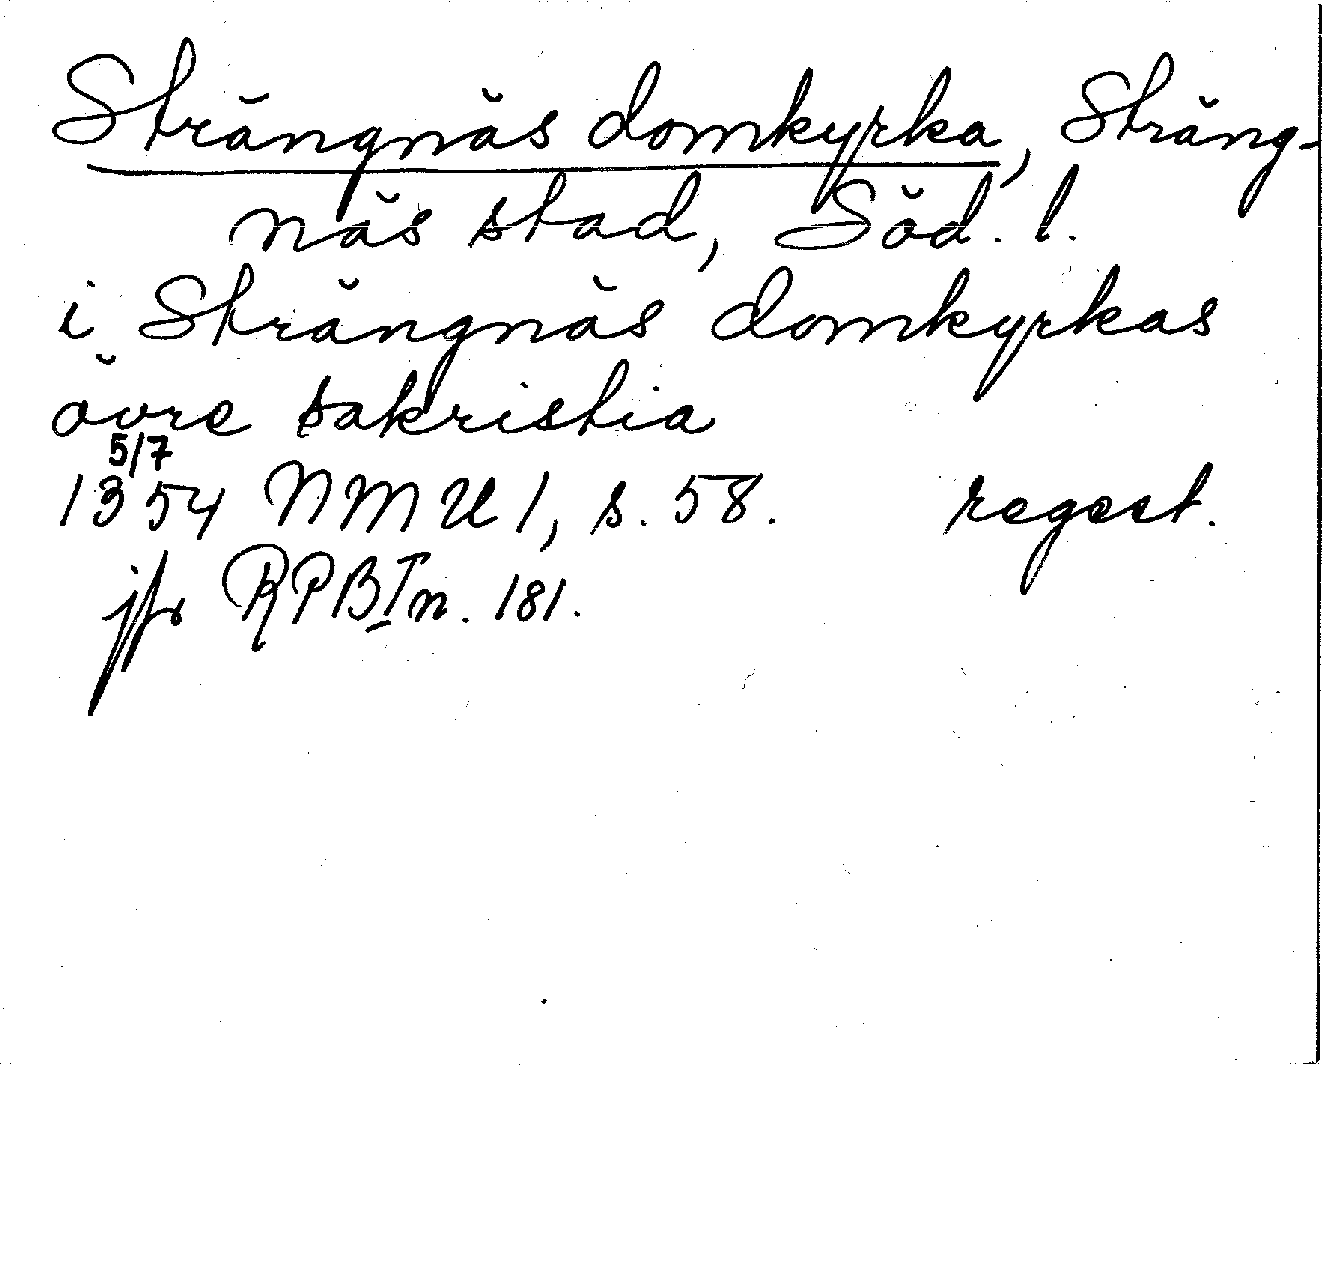 Strängnäs domkyrka, Sträng-
näs stad, Söd. l.
i Strängnäs domkyrkas
övre sakristia
5/7
1354 NMU 1, s. 58. regest.
jfr RPB I n. 181.